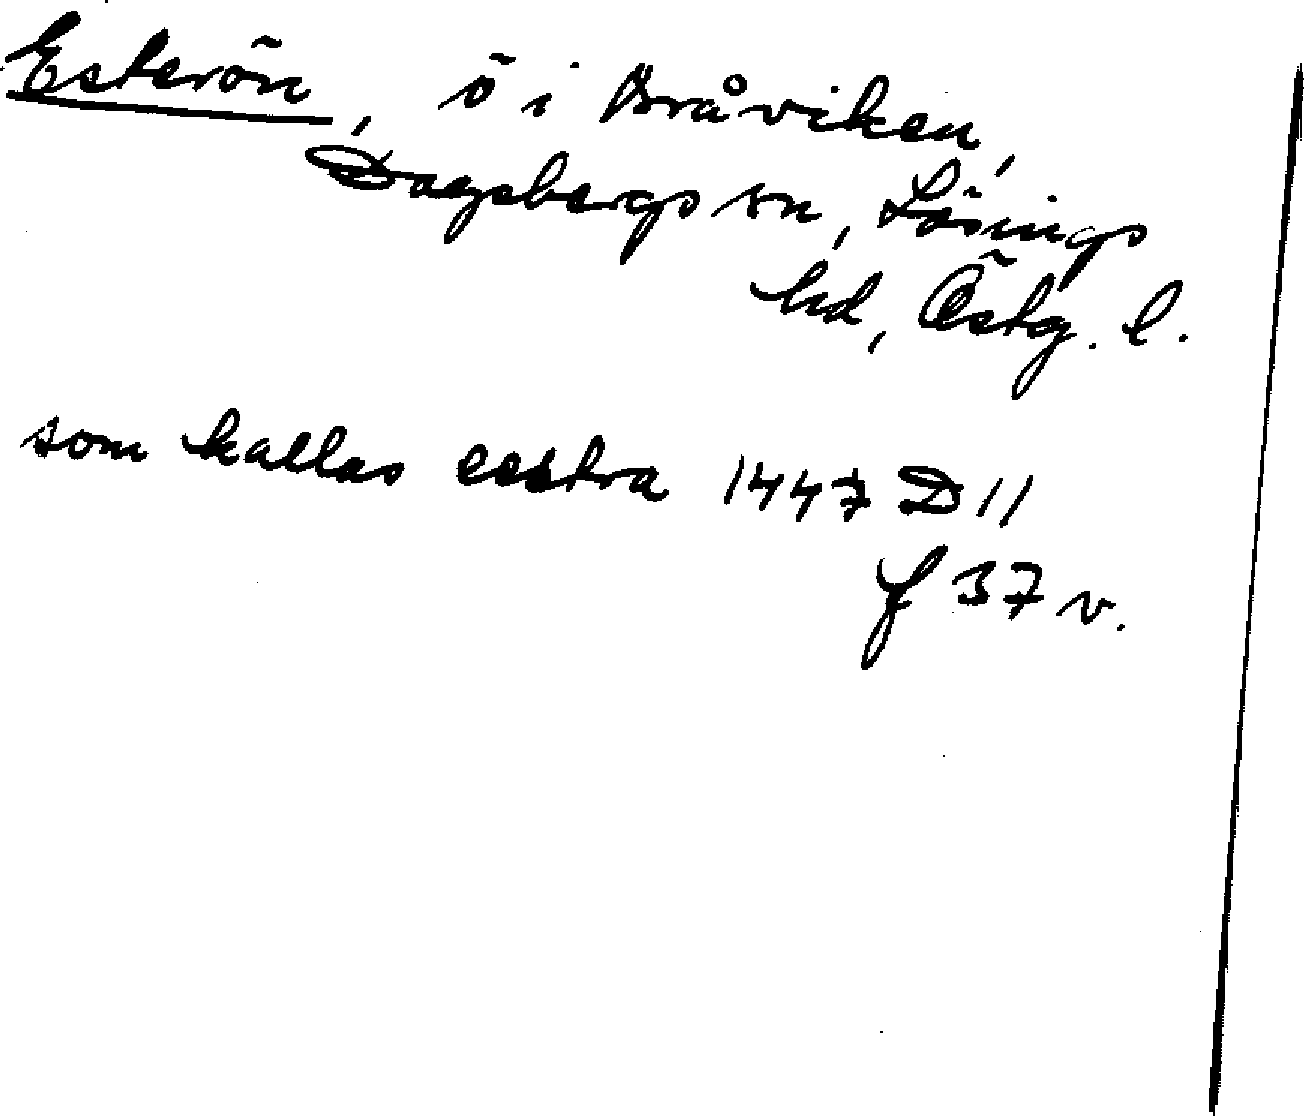 Esterön, ö i Bråviken,
Dagsbergs sn, Lösings
hd, Östg. l.
som kallas eestra 1447 D 11
f 37 v.